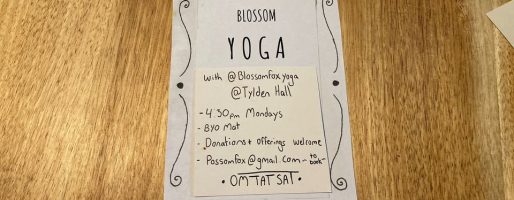 BLOSSOM
YOGA
with @Blossomfoxyoga
@Tylden Hall
- 4.30pm Mondays
- BYO Mat
- Donations + offerings welcome
- Possomfox@gmail.com - to book -
• OM TAT SAT •